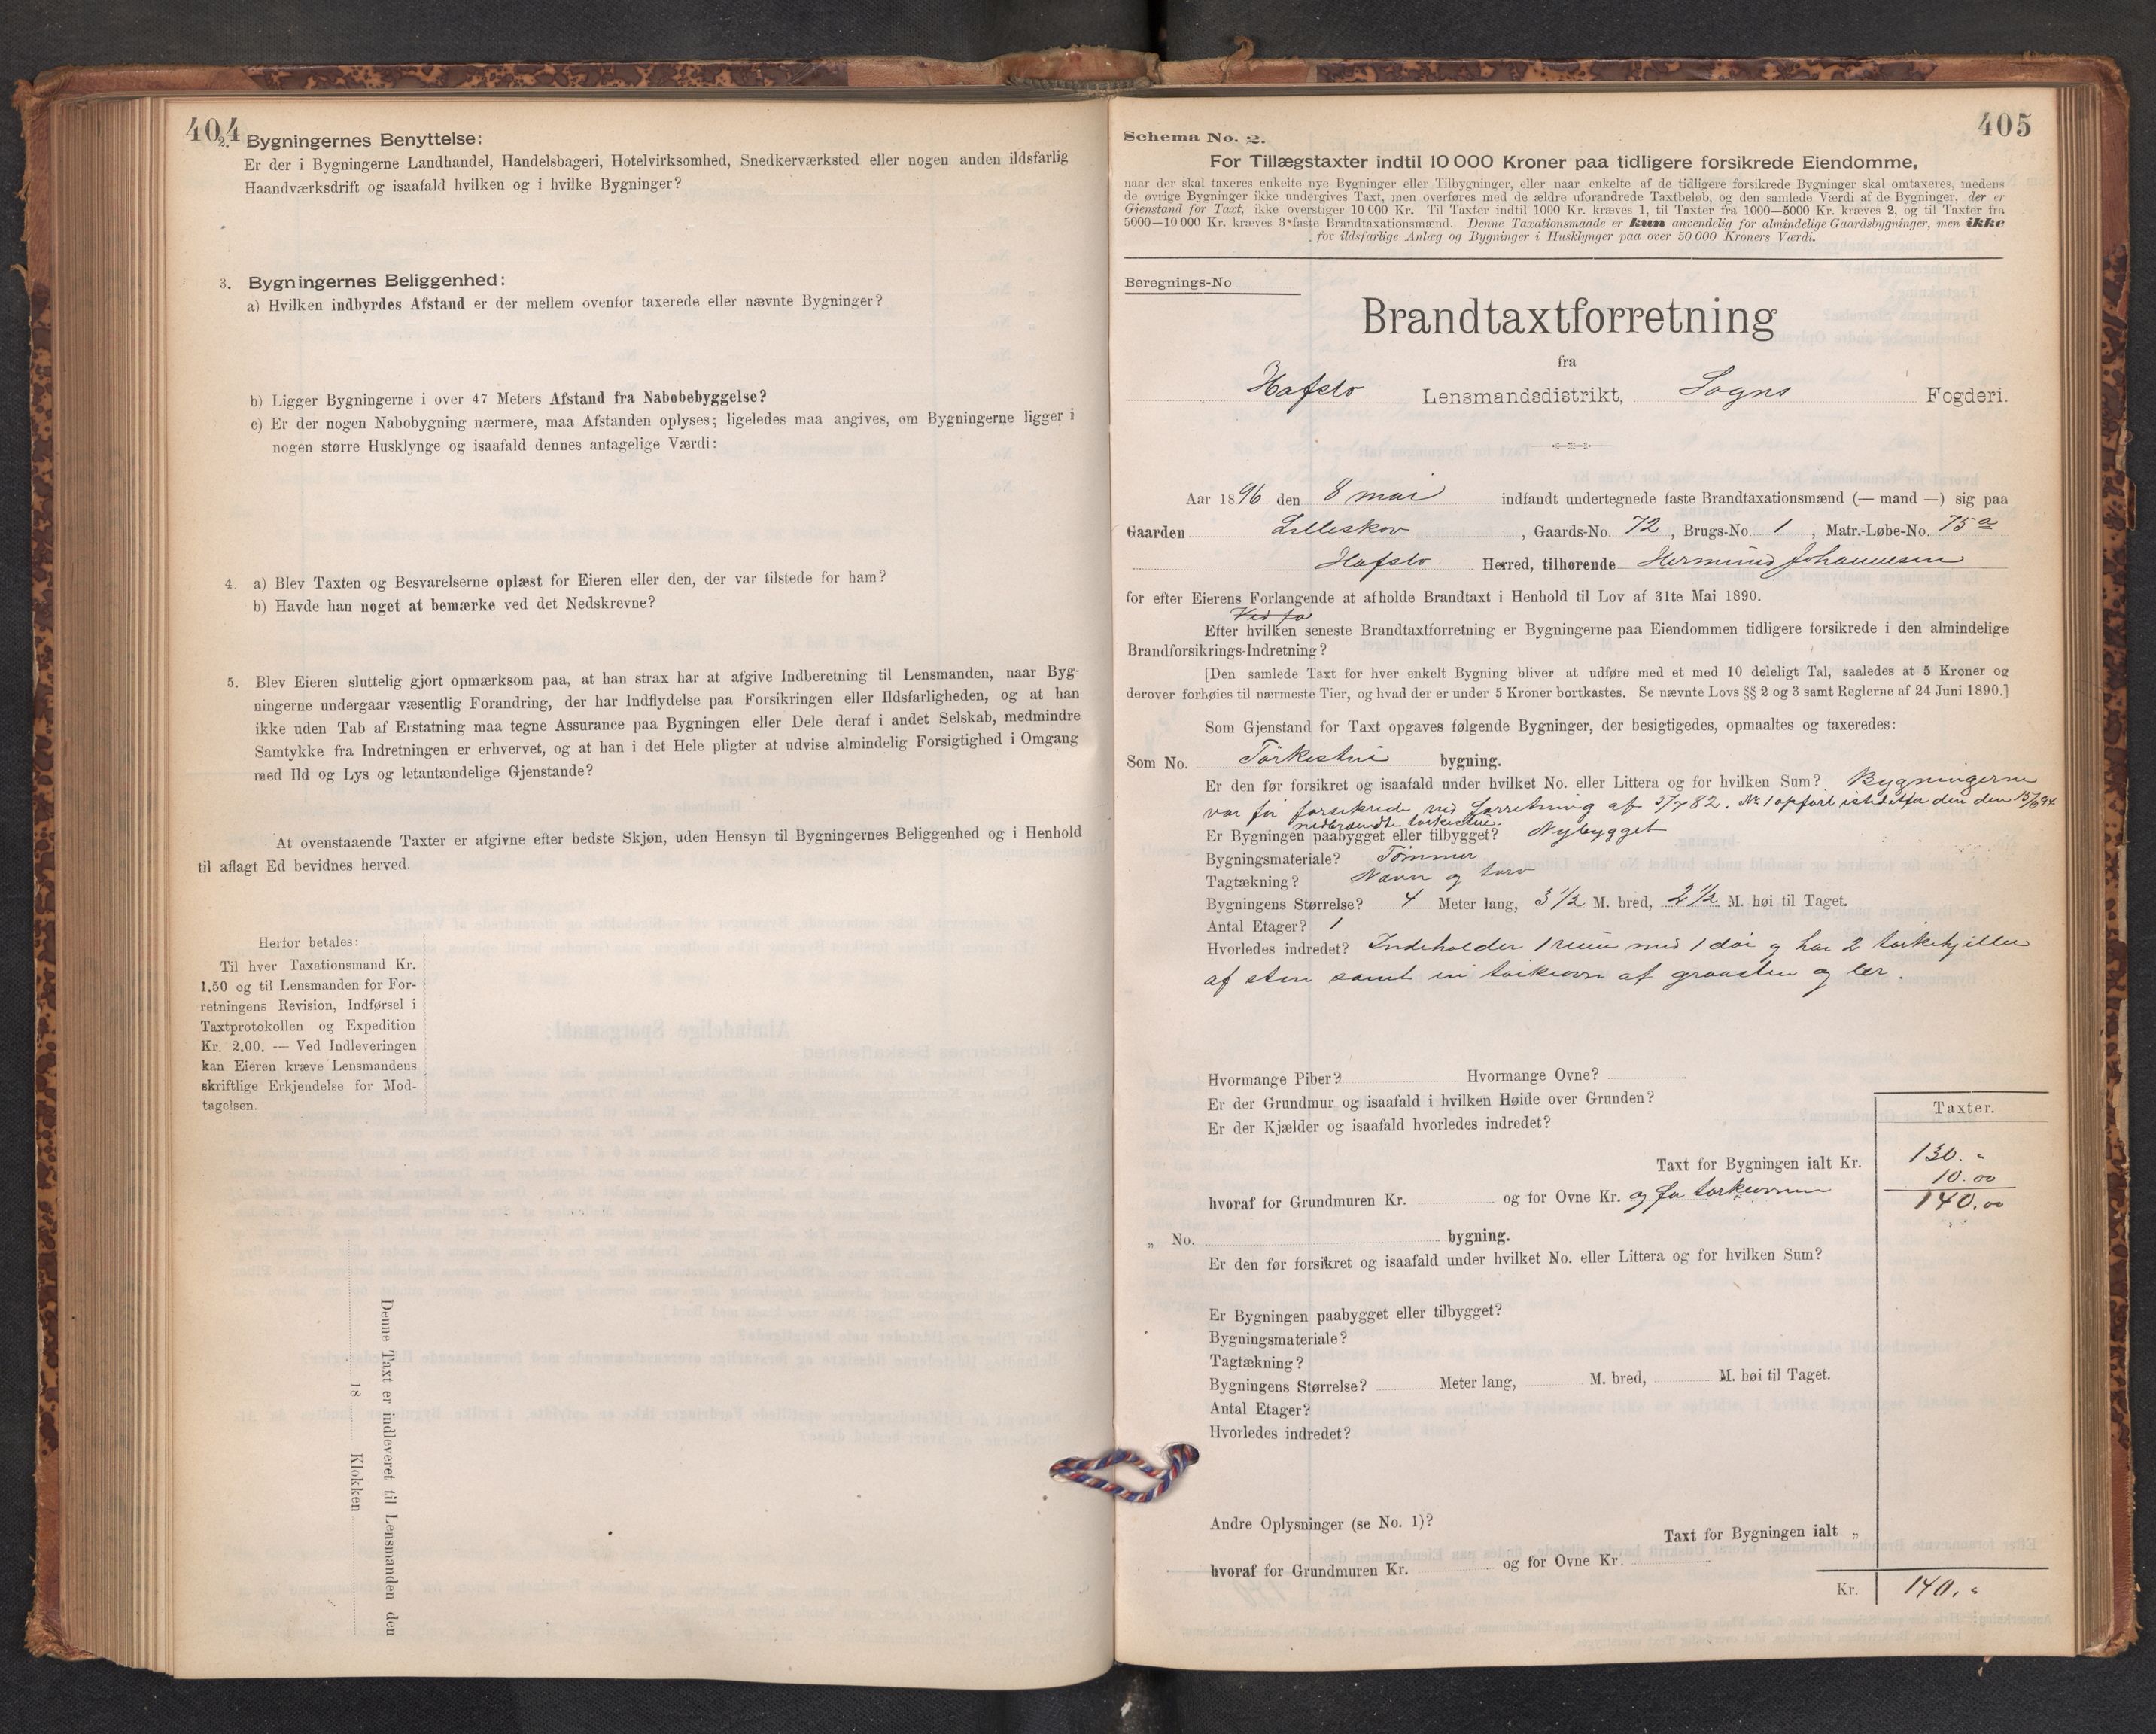 404
2. Bygningernes Benyttelse:
Er der i Bygningerne Landhandel, Handelsbageri, Hotelvirksomhed, Snedkerværksted eller nogen anden ildsfarlig
Haandværksdrift og isaafald hvilken og i hvilke Bygninger?
3. Bygningernes Beliggenhed:
a) Hvilken indbyrdes Afstand er der mellem ovenfor taxerede eller nævnte Bygninger?
b) Ligger Bygningerne i over 47 Meters Afstand fra Nabobebyggelse?
c) Er der nogen Nabobygning nærmere, maa Afstanden oplyses; ligeledes maa angives, om Bygningerne ligger i
nogen større Husklynge og isaafald dennes antagelige Værdi:
4. a) Blev Taxten og Besvarelserne oplæst for Eieren eller den, der var tilstede for ham?
b) Havde han noget at bemærke ved det Nedskrevne?
5. Blev Eieren sluttelig gjort opmærksom paa, at han strax har at afgive Indberetning til Lensmanden, naar Byg-
ningerne undergaar væsentlig Forandring, der har Indflydelse paa Forsikringen eller Ildsfarligheden, og at han
ikke uden Tab af Erstatning maa tegne Assurance paa Bygningen eller Dele deraf i andet Selskab, medmindre
Samtykke fra Indretningen er erhvervet, og at han i det Hele pligter at udvise almindelig Forsigtighed i Omgang
med Ild og Lys og letantændelige Gjenstande?
At ovenstaaende Taxter er afgivne efter bedste Skjøn, uden Hensyn til Bygningernes Beliggenhed og i Henhold
til aflagt Ed bevidnes herved.
Herfor betales:
Til hver Taxationsmand Kr.
1.50 og til Lensmanden for For-
retningens Revision, Indførsel i
Taxtprotokollen og Expedition
Kr. 2.00. — Ved Indleveringen
kan Eieren kræve Lensmandens
skriftlige Erkjendelse for Mod-
tagelsen.
Denne Taxt er indleveret til Lensmanden den
18 Klokken
405
Schema No. 2.
For Tillægstaxter indtil 10 000 Kroner paa tidligere forsikrede Eiendomme,
naar der skal taxeres enkelte nye Bygninger eller Tilbygninger, eller naar enkelte af de tidligere forsikrede Bygninger skal omtaxeres, medens
de øvrige Bygninger ikke undergives Taxt, men overføres med de ældre uforandrede Taxtbeløb, og den samlede Værdi af de Bygninger, der er
Gjenstand for Taxt, ikke overstiger 10 000 Kr. Til Taxter indtil 1000 Kr. kræves 1, til Taxter fra 1000—5000 Kr. kræves 2, og til Taxter fra
5000—10 000 Kr. kræves 3 faste Brandtaxationsmænd. Denne Taxationsmaade er kun anvendelig for almindelige Gaardsbygninger, men ikke
for ildsfarlige Anlæg og Bygninger i Husklynger paa over 50 000 Kroners Værdi.
Beregnings-No
Brandtaxtforretning
fra
Hafslo Lensmandsdistrikt, Sogns Fogderi.
Aar 1896 den 8 mai indfandt undertegnede faste Brandtaxationsmænd (— mand —) sig paa
Gaarden Lilleskov, Gaards-No. 72, Brugs-No 1, Matr.-Løbe-No. 75a
Hafslo Herred, tilhørende Hermund Johannesen
for efter Eierens Forlangende at afholde Brandtaxt i Henhold til Lov af 31te Mai 1890.
Ved fo
Efter hvilken seneste Brandtaxtforretning er Bygningerne paa Eiendommen tidligere forsikrede i den almindelige
Brandforsikrings-Indretning?
[Den samlede Taxt for hver enkelt Bygning bliver at udføre med et med 10 deleligt Tal, saaledes at 5 Kroner og
derover forhøies til nærmeste Tier, og hvad der er under 5 Kroner bortkastes. Se nævnte Lovs §§ 2 og 3 samt Reglerne af 24 Juni 1890.]
Som Gjenstand for Taxt opgaves følgende Bygninger, der besigtigedes, opmaaltes og taxeredes:
Som No. Törkestue bygning.
Er den før forsikret og isaafald under hvilket No. eller Littera og for hvilken Sum? Bygningerne
var før forsikrede ved forretning af 5/7 82. No. 1 opført istedetfor den den 15/6 94
nedbrændte törkestue.
Er Bygningen paabygget eller tilbygget? Nybygget
Bygningsmateriale? Tömmer
Tagtækning? Næver og torv
Bygningens Størrelse? 4 Meter lang, 3 1/2 M. bred, 2 1/2 M. høi til Taget.
Antal Etager? 1
Hvorledes indredet? Indeholder 1 rum med 1 dör og har 2 törkehjeller
af sten samt en törkeovn af graasten og ler.
Hvormange Piber? Hvormange Ovne?
Er der Grundmur og isaafald i hvilken Høide over Grunden?
Er der Kjælder og isaafald hvorledes indredet?
Taxter.
Taxt for Bygningen ialt Kr. 130. "
10.00
hvoraf for Grundmuren Kr. og for Ovne Kr. og for törkeovnen 140.00
" No. bygning.
Er den før forsikret og isaafald under hvilket No. eller Littera og for hvilken Sum?
Er Bygningen paabygget eller tilbygget?
Bygningsmateriale?
Tagtækning?
Bygningens Størrelse? Meter lang, M. bred, M. høi til Taget.
Antal Etager?
Hvorledes indredet?
Andre Oplysninger (se No. 1)?
Taxt for Bygningen ialt "
hvoraf for Grundmuren Kr. og for Ovne Kr.
Kr. 140. "